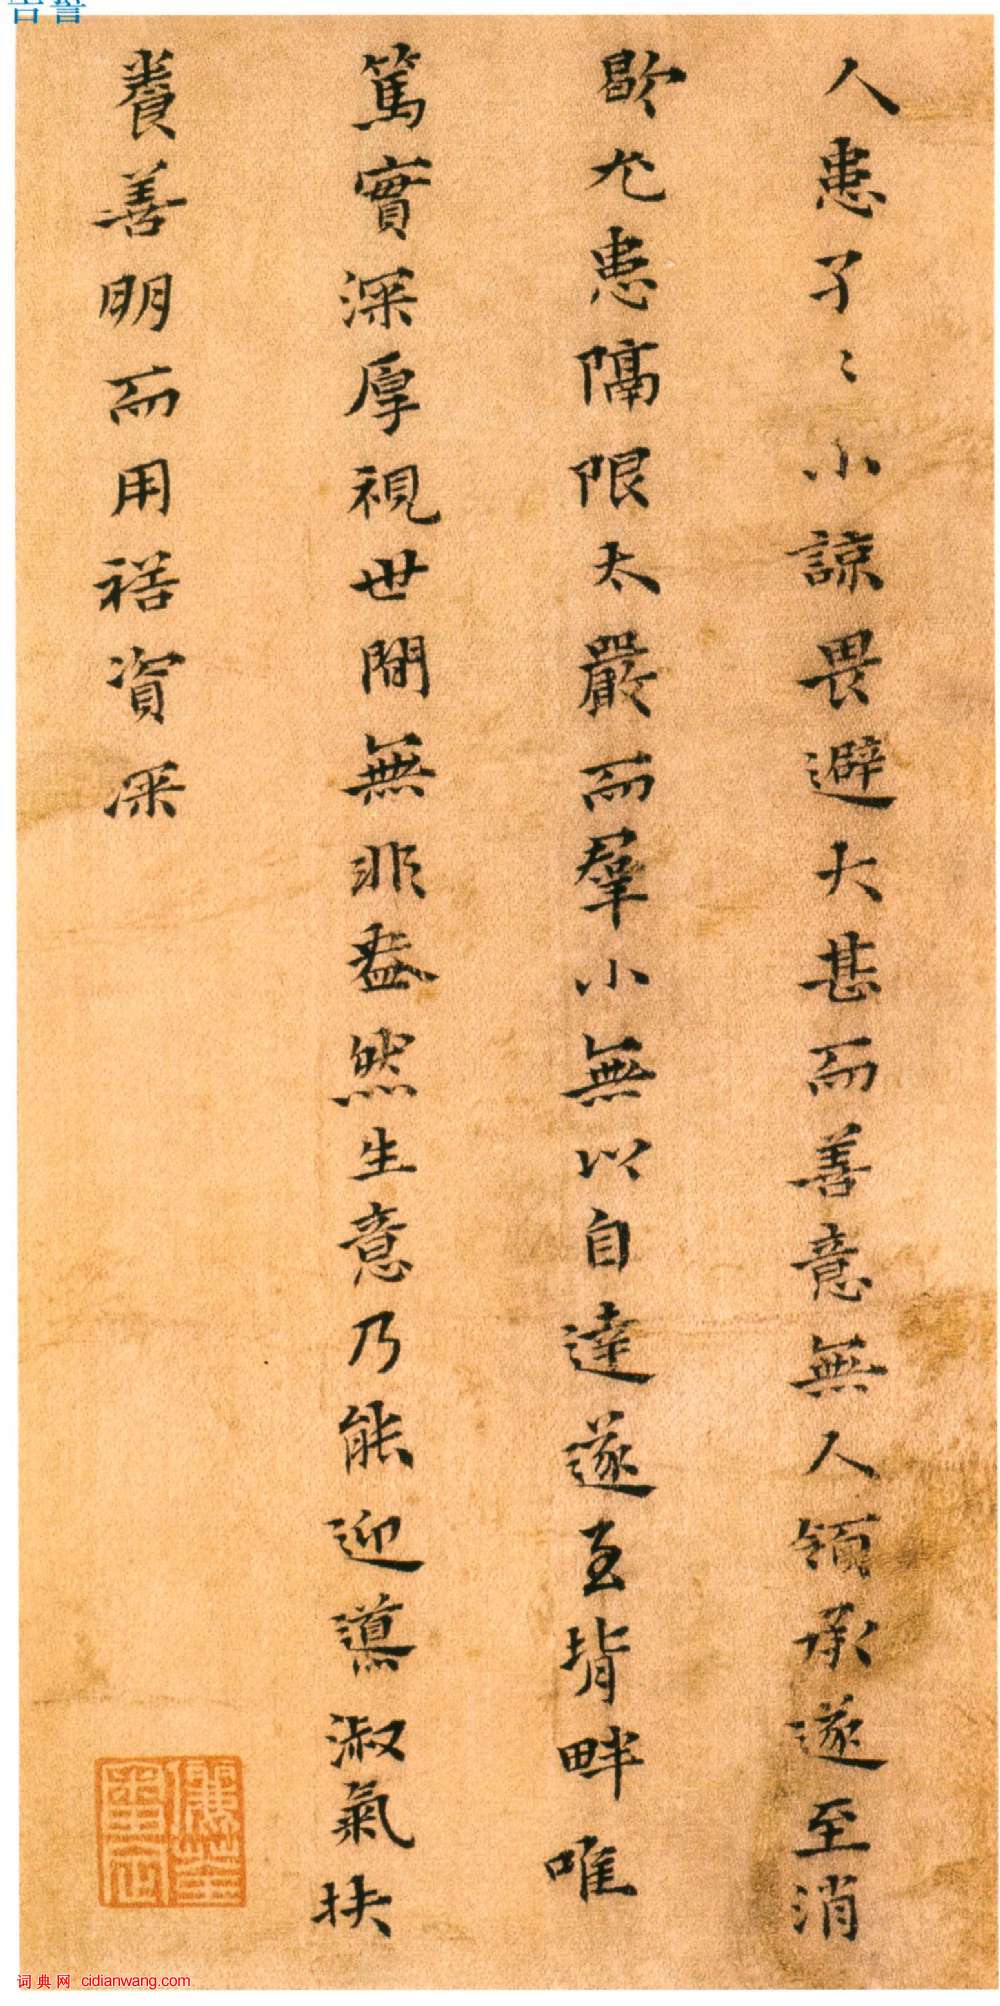 人患孑〻小諒畏避大甚而善意無人領承遂至消
歇尤患隔限太嚴而羣小無以自達遂至背畔唯
篤實深厚視世間無非盎然生意乃能迎導淑氣扶
養善明而用裕資深
词典网 cidianwang.com